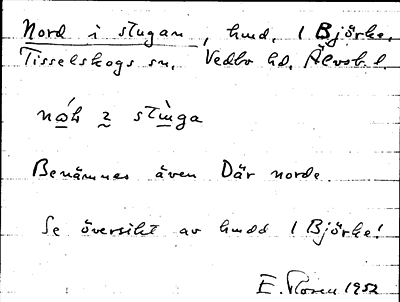 Nord i stugan, hmd. 1 Björke.
Tisselskogs sn. Vedbo hd. Älvsb. l.
Benämnes även Där norde.
Se översikt av hmdd 1 Björke!
E. Rosen 1952